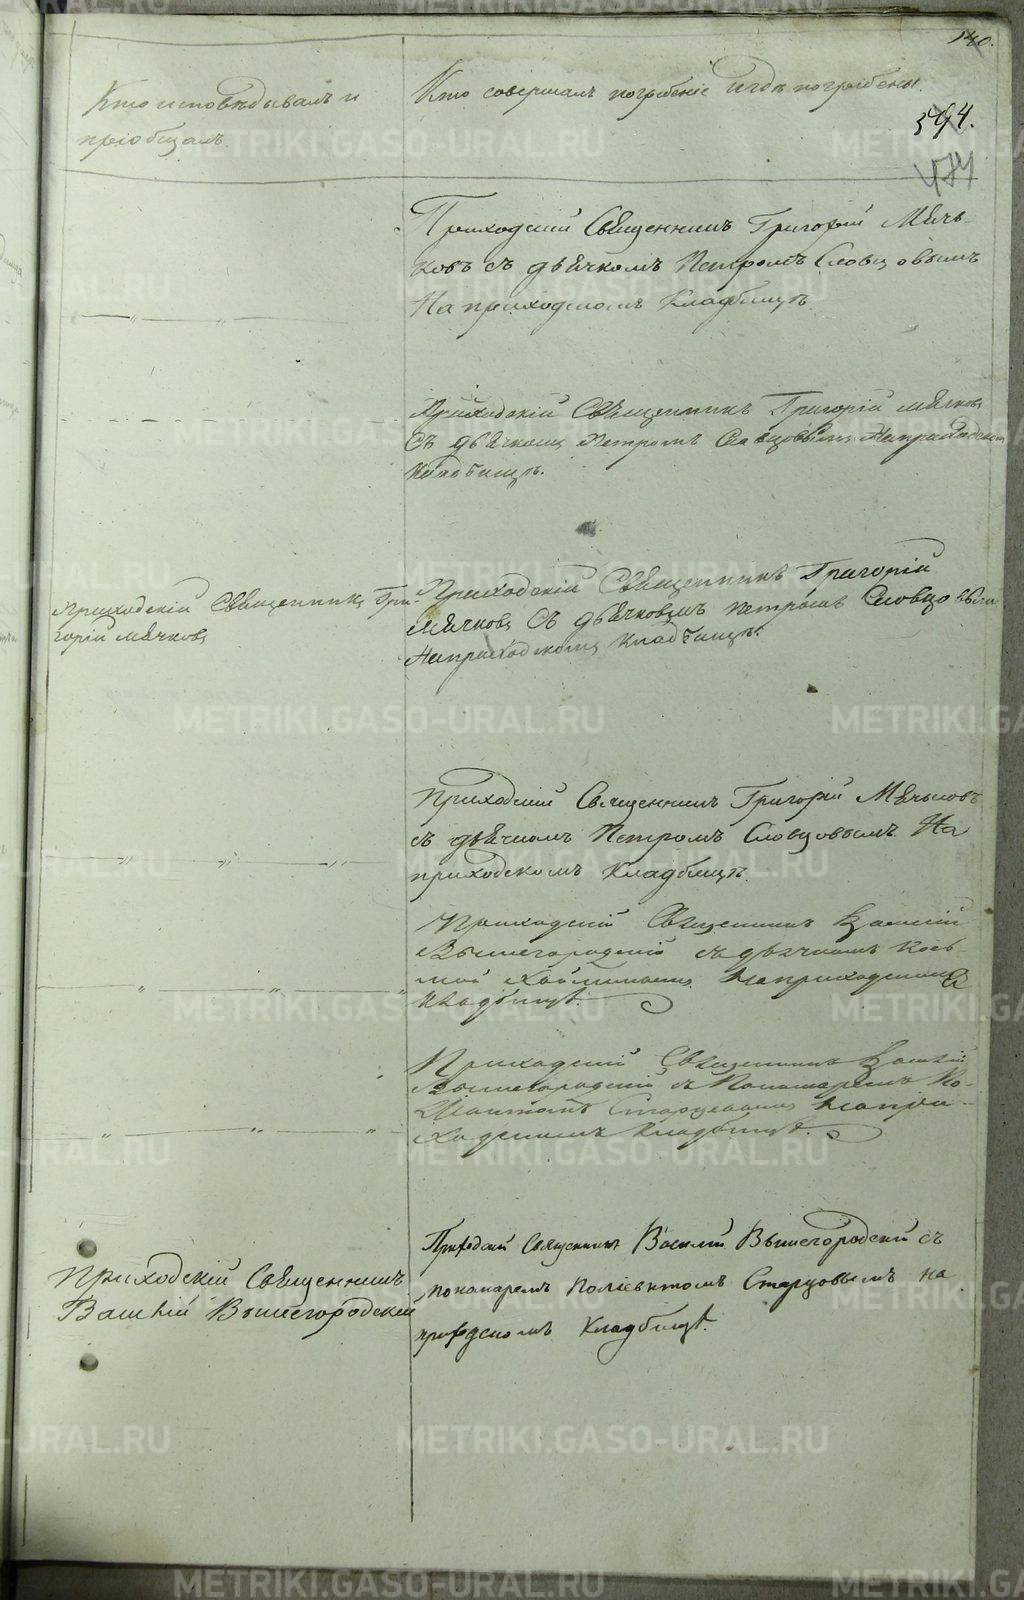 140.
Кто исповѣдывалъ и
преобщалъ.
Кто совершалъ погребеніе и гдѣ погребены.
594.
474
Приходскій Священникъ Григорій Мячь-
ковъ съ дьячкомъ Петромъ Словцовымъ
На приходскомъ Кладбищѣ
Приходскій Священникъ Григорій Мячковъ
Съ дьячкомъ Петромъ Словцовымъ На приходскомъ
Кладбищѣ.
Приходскій Священникъ Гри-
горій Мячковъ
Приходскій Священникъ Григорій
Мячковъ Съ дьячковымъ Петромъ Словцовымъ
На приходскомъ Кладбищѣ.
Приходскій Священникъ Григорій Мячьковъ
съ дьячкомъ Петромъ Словцовымъ На
приходскомъ Кладбищѣ.
Приходскій Священникъ Василій
Вышегородскій съ дьячкомъ Кось-
мой на приходскомъ
Кладбищѣ.
Приходскій Священникъ Василій
Вышегородскій съ Пономаремъ По-
Старцовымъ на при-
ходскомъ Кладбищѣ.
Приходскій Священникъ
Василій Вышегородскій
Приходскій Священникъ Василій Вышегородскій съ
пономаремъ Поліевктомъ Старцовымъ на
приходскомъ Кладбищѣ.
METRIKI.GASO-URAL.RU